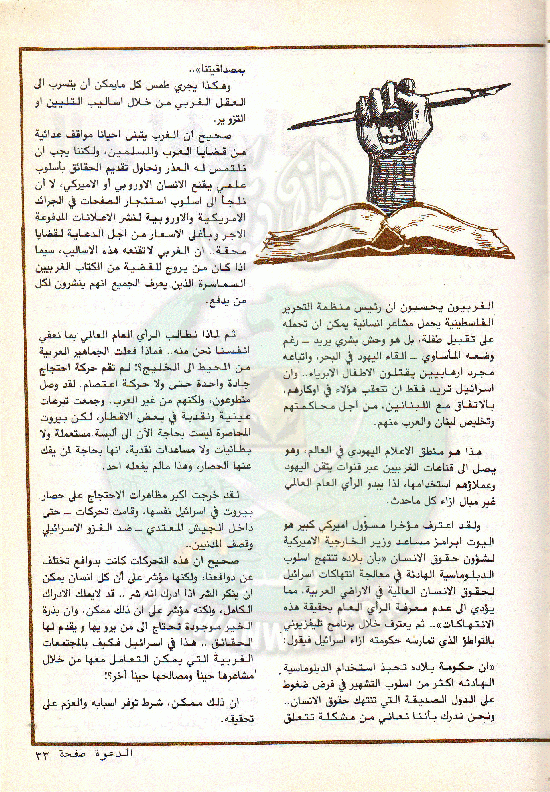 الغربيون يحسبون ان رئيس منظمة التحرير
الفلسطينية يحمل مشاعر انسانية يمكن ان تحمله
على تقبيل طفلة، بل هو وحش بشري يريد - رغم
وضعه المأساوي - القاء اليهود في البحر، واتباعه
مجرد ارهابيين يقتلون الاطفال الابرياء.. وان
اسرائيل تريد فقط ان تتعقب هؤلاء في اوكارهم،
بالاتفاق مع اللبنانيين، من أجل محاكمتهم
وتخليص لبنان والعرب منهم.
هذا هو منطق الاعلام اليهودي في العالم، وهو
يصل الى قناعات الغربيين عبر قنوات يتقن اليهود
وعملاؤهم استخدامها، لذا يبدو الرأي العام العالمي
غير مبال ازاء كل ماحدث.
ولقد اعترف مؤخرا مسؤول اميركي كبير هو
اليوت ابرامز مساعد وزير الخارجية الاميركية
لشؤون حقوق الانسان «بأن بلاده تنتهج اسلوب
الدبلوماسية الهادئة في معالجة انتهاكات اسرائيل
لحقوق الانسان العالمية في الاراضي العربية، مما
يؤدي الى عدم معرفة الرأي العام بحقيقة هذه
الانتهاكات».. ثم يعترف خلال برنامج تليفزيوني
بالتواطؤ الذي تمارسه حكومته ازاء اسرائيل فيقول:
«ان حكومة بلاده تحبذ استخدام الدبلوماسية
الهادئه أكثر من اسلوب التشهير في فرض ضغوط
على الدول الصديقة التي تنتهك حقوق الانسان..
ونحن ندرك بأننا نعاني من مشكلة تتعلق
بمصداقيتنا»..
وهكذا يجري طمس كل مايمكن أن يتسرب الى
العقل الغربي من خلال اساليب التليين او
التزوير.
صحيح ان الغرب يتبنى احيانا مواقف عدائية
من قضايا العرب والمسلمين، ولكننا يجب ان
نلتمس له العذر ونحاول تقديم الحقائق بأسلوب
علمي يقنع الانسان الاوروبي أو الاميركي، لا أن
نلجأ الى اسلوب استئجار الصفحات في الجرائد
الامريكية والاوروبية لنشر الاعلانات المدفوعة
الاجر وبأغلى الاسعار من اجل الدعاية لقضايا
محقة.. ان الغربي لاتقنعه هذه الاساليب، سيما
اذا كان من يروج للقضية من الكتاب الغربيين
السماسرة الذين يعرف الجميع انهم ينشرون لكل
من يدفع.
ثم لماذا نطالب الرأي العام العالمي بما نعفي
انفسنا نحن منه.. فماذا فعلت الجماهير العربية
من المحيط الى الخليج؟! لم تقم حركة احتجاج
جادة واحدة حتى ولا حركة اعتصام. لقد وصل
متطوعون، ولكنهم من غير العرب.. وجمعت تبرعات
عينية ونقدية في بعض الاقطار، لكن بيروت
المحاصرة ليست بحاجة الآن الى ألبسة مستعملة ولا
بطانيات ولا مساعدات نقدية، انها بحاجة لمن يفك
عنها الحصار، وهذا مالم يفعله احد.
لقد خرجت اكبر مظاهرات الاحتجاج على حصار
بيروت في اسرائيل نفسها، وقامت تحركات - حتى
داخل الجيش المعتدي - ضد الغزو الاسرائيلي
وقصف المدنيين..
صحيح ان هذه التحركات كانت بدوافع تختلف
عن دوافعنا، ولكنها مؤشر على أن كل انسان يمكن
ان ينكر الشر اذا ادرك انه شر.. قد لايملك الادراك
الكامل، ولكنه مؤشر على ان ذلك ممكن، وان بذرة
الخير موجودة تحتاج الى من يرويها ويقدم لها
الحقائق.. هذا في اسرائيل فكيف بالمجتمعات
الغربية التي يمكن التعامل معها من خلال
مشاعرها حيناً ومصالحها حيناً آخر؟!
ان ذلك ممكن، شرط توفر اسبابه والعزم على
تحقيقه.
الدعوة صفحة ٣٣